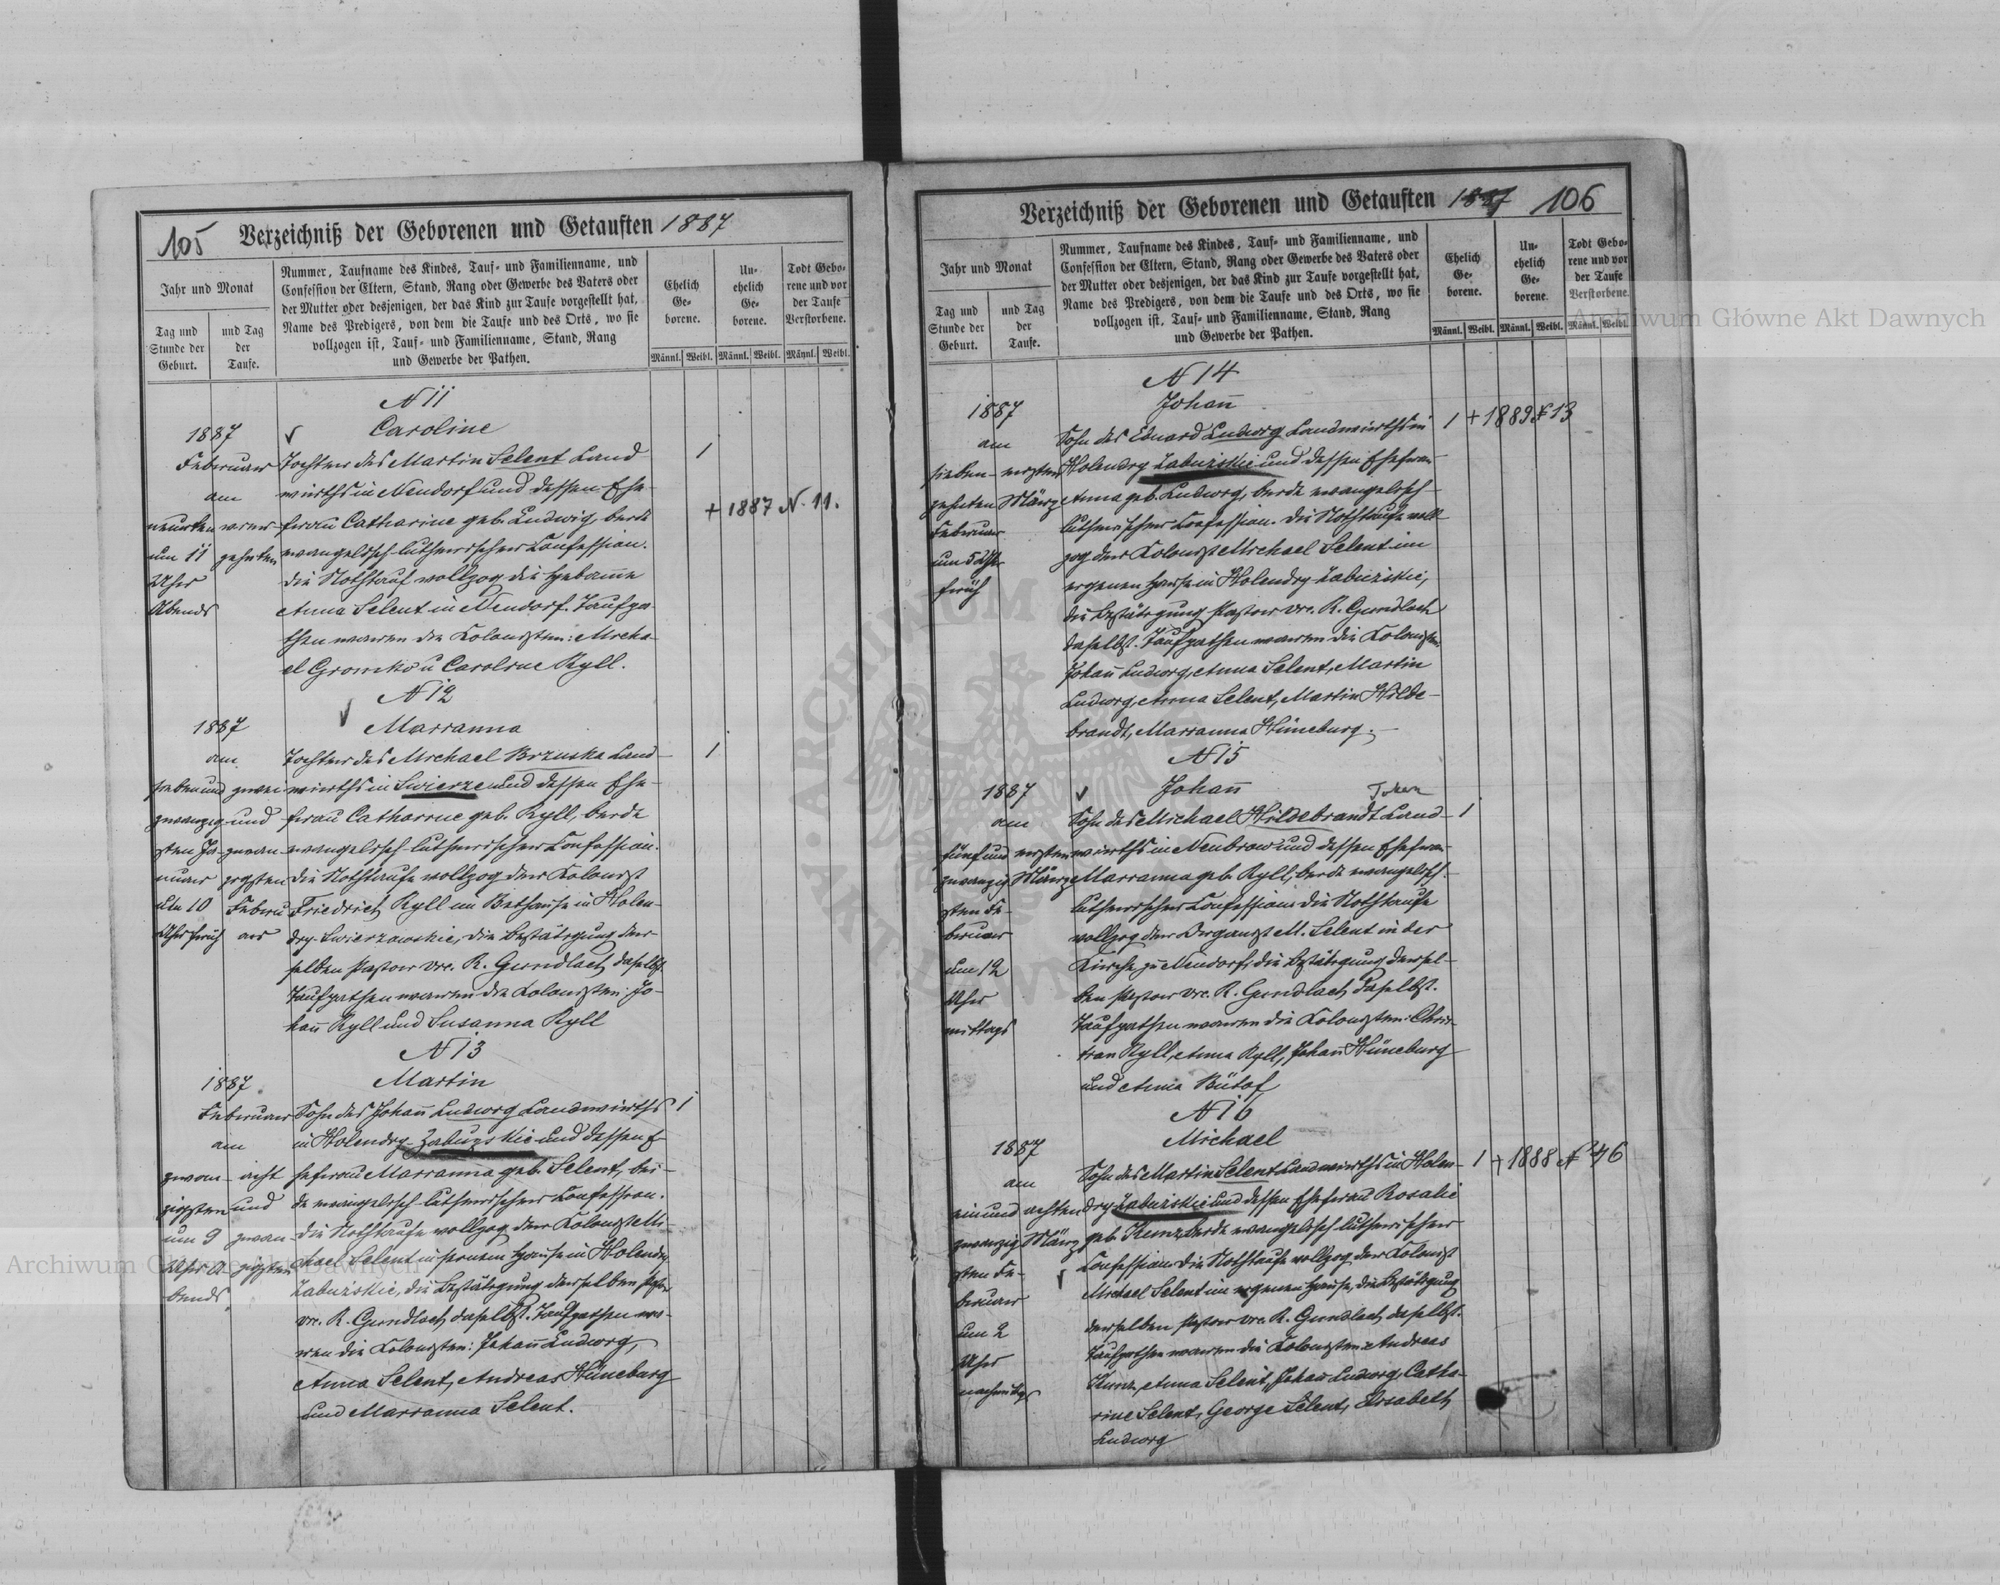 105 Verzeichniß der Geborenen und Getauften 1887
Jahr und Monat
Tag und
Stunde der
Geburt.
und Tag
der
Taufe.
Nummer, Taufname des Kindes, Tauf- und Familienname, und
Confession der Eltern, Stand, Rang oder Gewerbe des Vaters oder
der Mutter oder desjenigen, der das Kind zur Taufe vorgestellt hat,
Name des Predigers, von dem die Taufe und des Orts, wo sie
vollzogen ist, Tauf- und Familienname, Stand, Rang
und Gewerbe der Pathen.
Ehelich
Ge-
borene.
Un-
ehelich
Ge-
borene.
Todt Gebo-
rene und vor
der Taufe
Verstorbene.
Männl. Weibl. Männl. Weibl. Männl. Weibl.
N 11
1887
Februar
am
neunten
um 11
Uhr
Abends
vier-
zehnten
Caroline
Tochter des Martin Selent Land
wirths in Neudorf und dessen Ehe-
frau Catharine geb. Ludwig, beide
evangelisch-lutherischer Confession.
Die Nothtauf vollzog die Hebamme
Anna Selent in Neudorf. Taufpa-
then waren die Kolonisten: Micha-
el Gromko u Caroline Ryll.
1
+ 1887 N. 11.
N 12
1887
am
sieben und
zwanzig-
sten Ja-
nuar
um 10
Uhr früh
zwei
und
zwan-
zigsten
Febru
ar
Marianna
Tochter des Michael Brzuska Land-
wirths in Swierze und dessen Ehe-
frau Catharine geb. Ryll, beide
evangelisch-lutherischer Confession.
Die Nothtaufe vollzog der Kolonist
Friedrich Ryll im Bethause in Holen-
dry-Swierzowskie, die Bestätigung der-
selben Pastor vic. R. Gundlach daselbst.
Taufpathen waren die Kolonisten: Jo-
hann Ryll und Susanna Ryll
1
N 13
1887
Februar
am
zwan-
zigsten
um 9
Uhr A-
bends
acht
und
zwan-
zigsten
Martin
Sohn des Johann Ludwig Landwirths
in Holendry-Zabuzskie und dessen E-
hefrau Marianna geb. Selent, bei-
de evangelisch-lutherischer Confession.
Die Nothtaufe vollzog der Kolonist Mi-
chael Selent in seinem Hause in Holendry
Zabuzskie, die Bestätigung derselben Pastor
vic. R. Gundlach daselbst. Taufpathen wa-
ren die Kolonisten: Johann Ludwig,
Anna Selent, Andreas Hüneburg
und Marianna Selent.
1
Verzeichniß der Geborenen und Getauften 1887 106
Jahr und Monat
Tag und
Stunde der
Geburt.
und Tag
der
Taufe.
Nummer, Taufname des Kindes, Tauf- und Familienname, und
Confession der Eltern, Stand, Rang oder Gewerbe des Vaters oder
der Mutter oder desjenigen, der das Kind zur Taufe vorgestellt hat,
Name des Predigers, von dem die Taufe und des Orts, wo sie
vollzogen ist, Tauf- und Familienname, Stand, Rang
und Gewerbe der Pathen.
Ehelich
Ge-
borene.
Un-
ehelich
Ge-
borene.
Todt Gebo-
rene und vor
der Taufe
Verstorbene.
Männl. Weibl. Männl. Weibl. Männl. Weibl.
N 14
1887
am
sieben-
zehnten
Februar
um 5 Uhr
früh
ersten
März
Johann
Sohn des Eduard Ludwig Landwirths in
Holendry Zabuzskie und dessen Ehefrau
Anna geb. Ludwig, beide evangelisch-
lutherischer Confession. Die Nothtaufe voll-
zog der Kolonist Michael Selent im
eigenen Hause in Holendry-Zabuzskie,
die Bestätigung Pastor vic. R. Gundlach
daselbst. Taufpathen waren die Kolonisten
Johann Ludwig, Anna Selent, Martin
Ludwig, Anna Selent, Martin Hilde-
brandt, Marianna Hüneburg.
1 + 1889 N 13
N 15
1887
am
fünf und
zwanzig
sten Fe-
bruar
um 12
Uhr
mittags
ersten
März
Johann
Sohn des Michael Hildebrandt Land-
wirths in Neubrow und dessen Ehefrau
Marianna geb. Ryll, beide evangelisch-
lutherischer Confession die Nothtaufe
vollzog der Organist M. Selent in der
Kirche zu Neudorf, die Bestätigung dersel-
ben Pastor vic. R. Gundlach daselbst.
Taufpathen waren die Kolonisten: Chris-
tian Ryll, Anna Ryll, Johann Hüneburg
und Anna Bütof
1
N 16
1887
am
ein und
zwanzig
sten Fe-
bruar
um 2
Uhr
nachmittags
achten
März
Michael
Sohn des Martin Selent Landwirths in Holen-
dry Zabuzskie und dessen Ehefrau Rosalie
geb. Kunz, beide evangelisch-lutherischer
Confession. Die Nothtaufe vollzog der Kolonist
Michael Selent im eigenen Hause, die Bestätigung
derselben Pastor vic. R. Gundlach daselbst.
Taufpathen waren die Kolonisten: Andreas
Kunz, Anna Selent, Johann Ludwig, Catha-
rine Selent, George Selent, Elisabeth
Ludwig
1 + 1888 N 46
Archiwum Główne Akt Dawnych
Archiwum Główne Akt Dawnych